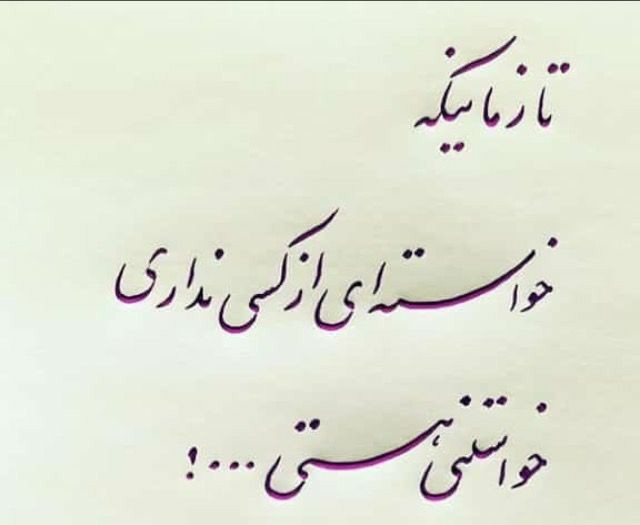 تا زمانیکه
خواسته ای از کسی نداری
خواستنی هستی...!